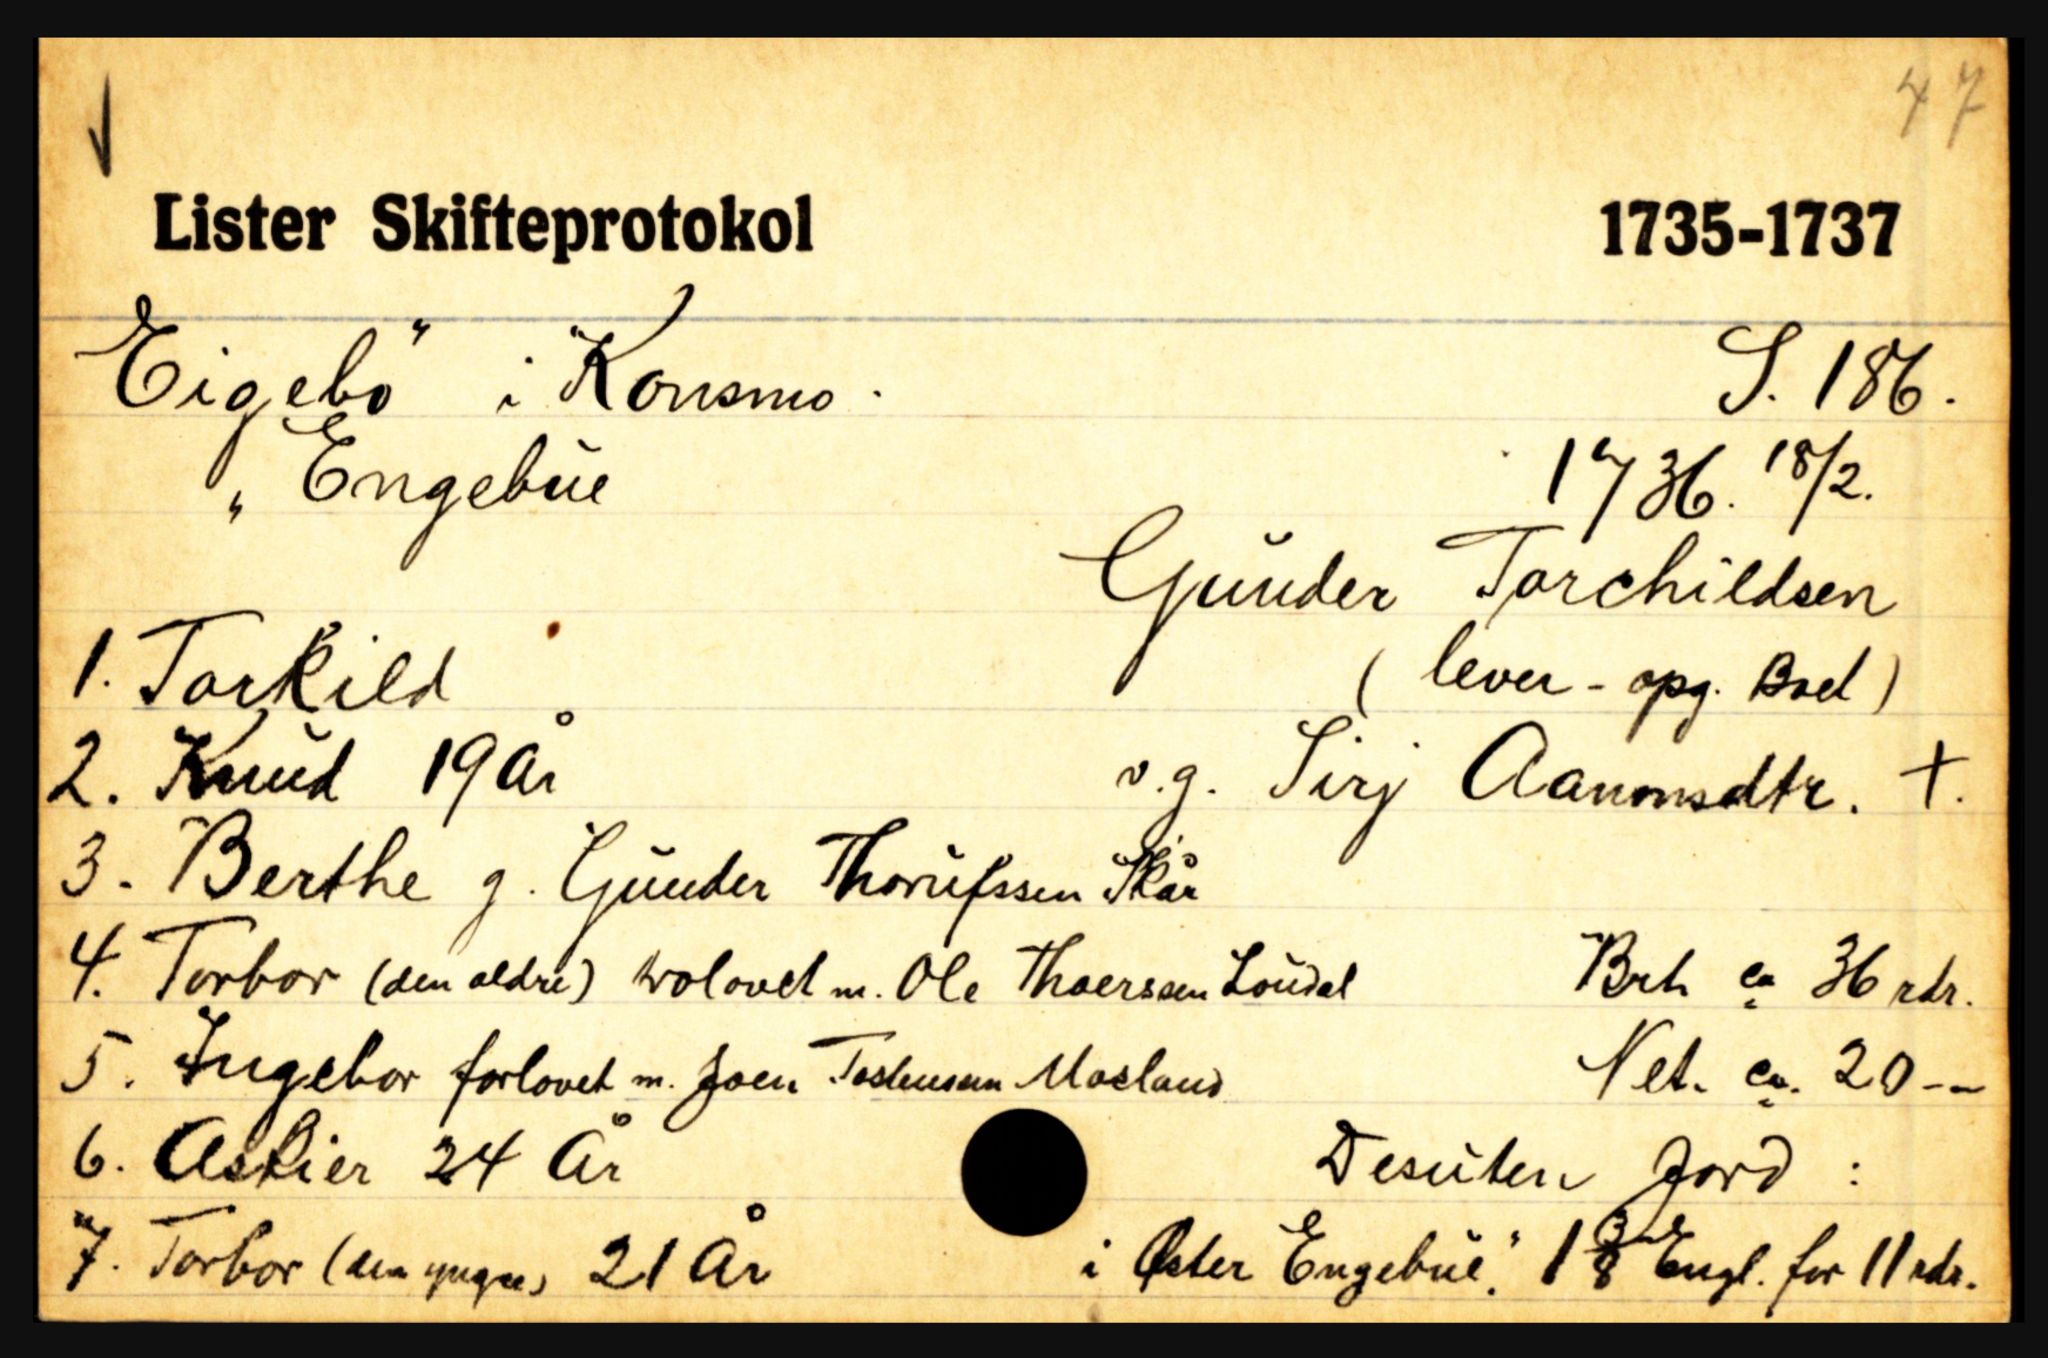 47
Lister Skifteprotokol 1735-1737
Eigebö" i Konsmo. S. 186.
" Engebüe 1736. 18/2.
Gunder Torchildsen
1. Torkild (lever - opg. Boel)
2. Knud 19 År v.g. Sirj Aanonsdtr. +.
3. Berthe g. Gunder Skår
4. Torbor (den ældre) trolovet m. Ole Thoerssen Brt. ca 36 rdr.
5. Ingebor forlovet m. Joen Mosland Net. ca. 20 --
6. Askier 24 År Desuten Jord :
7. Torbor (den yngre) 21 År i Øster Engebüe." 1 3/8 Engl. for 11 rdr.